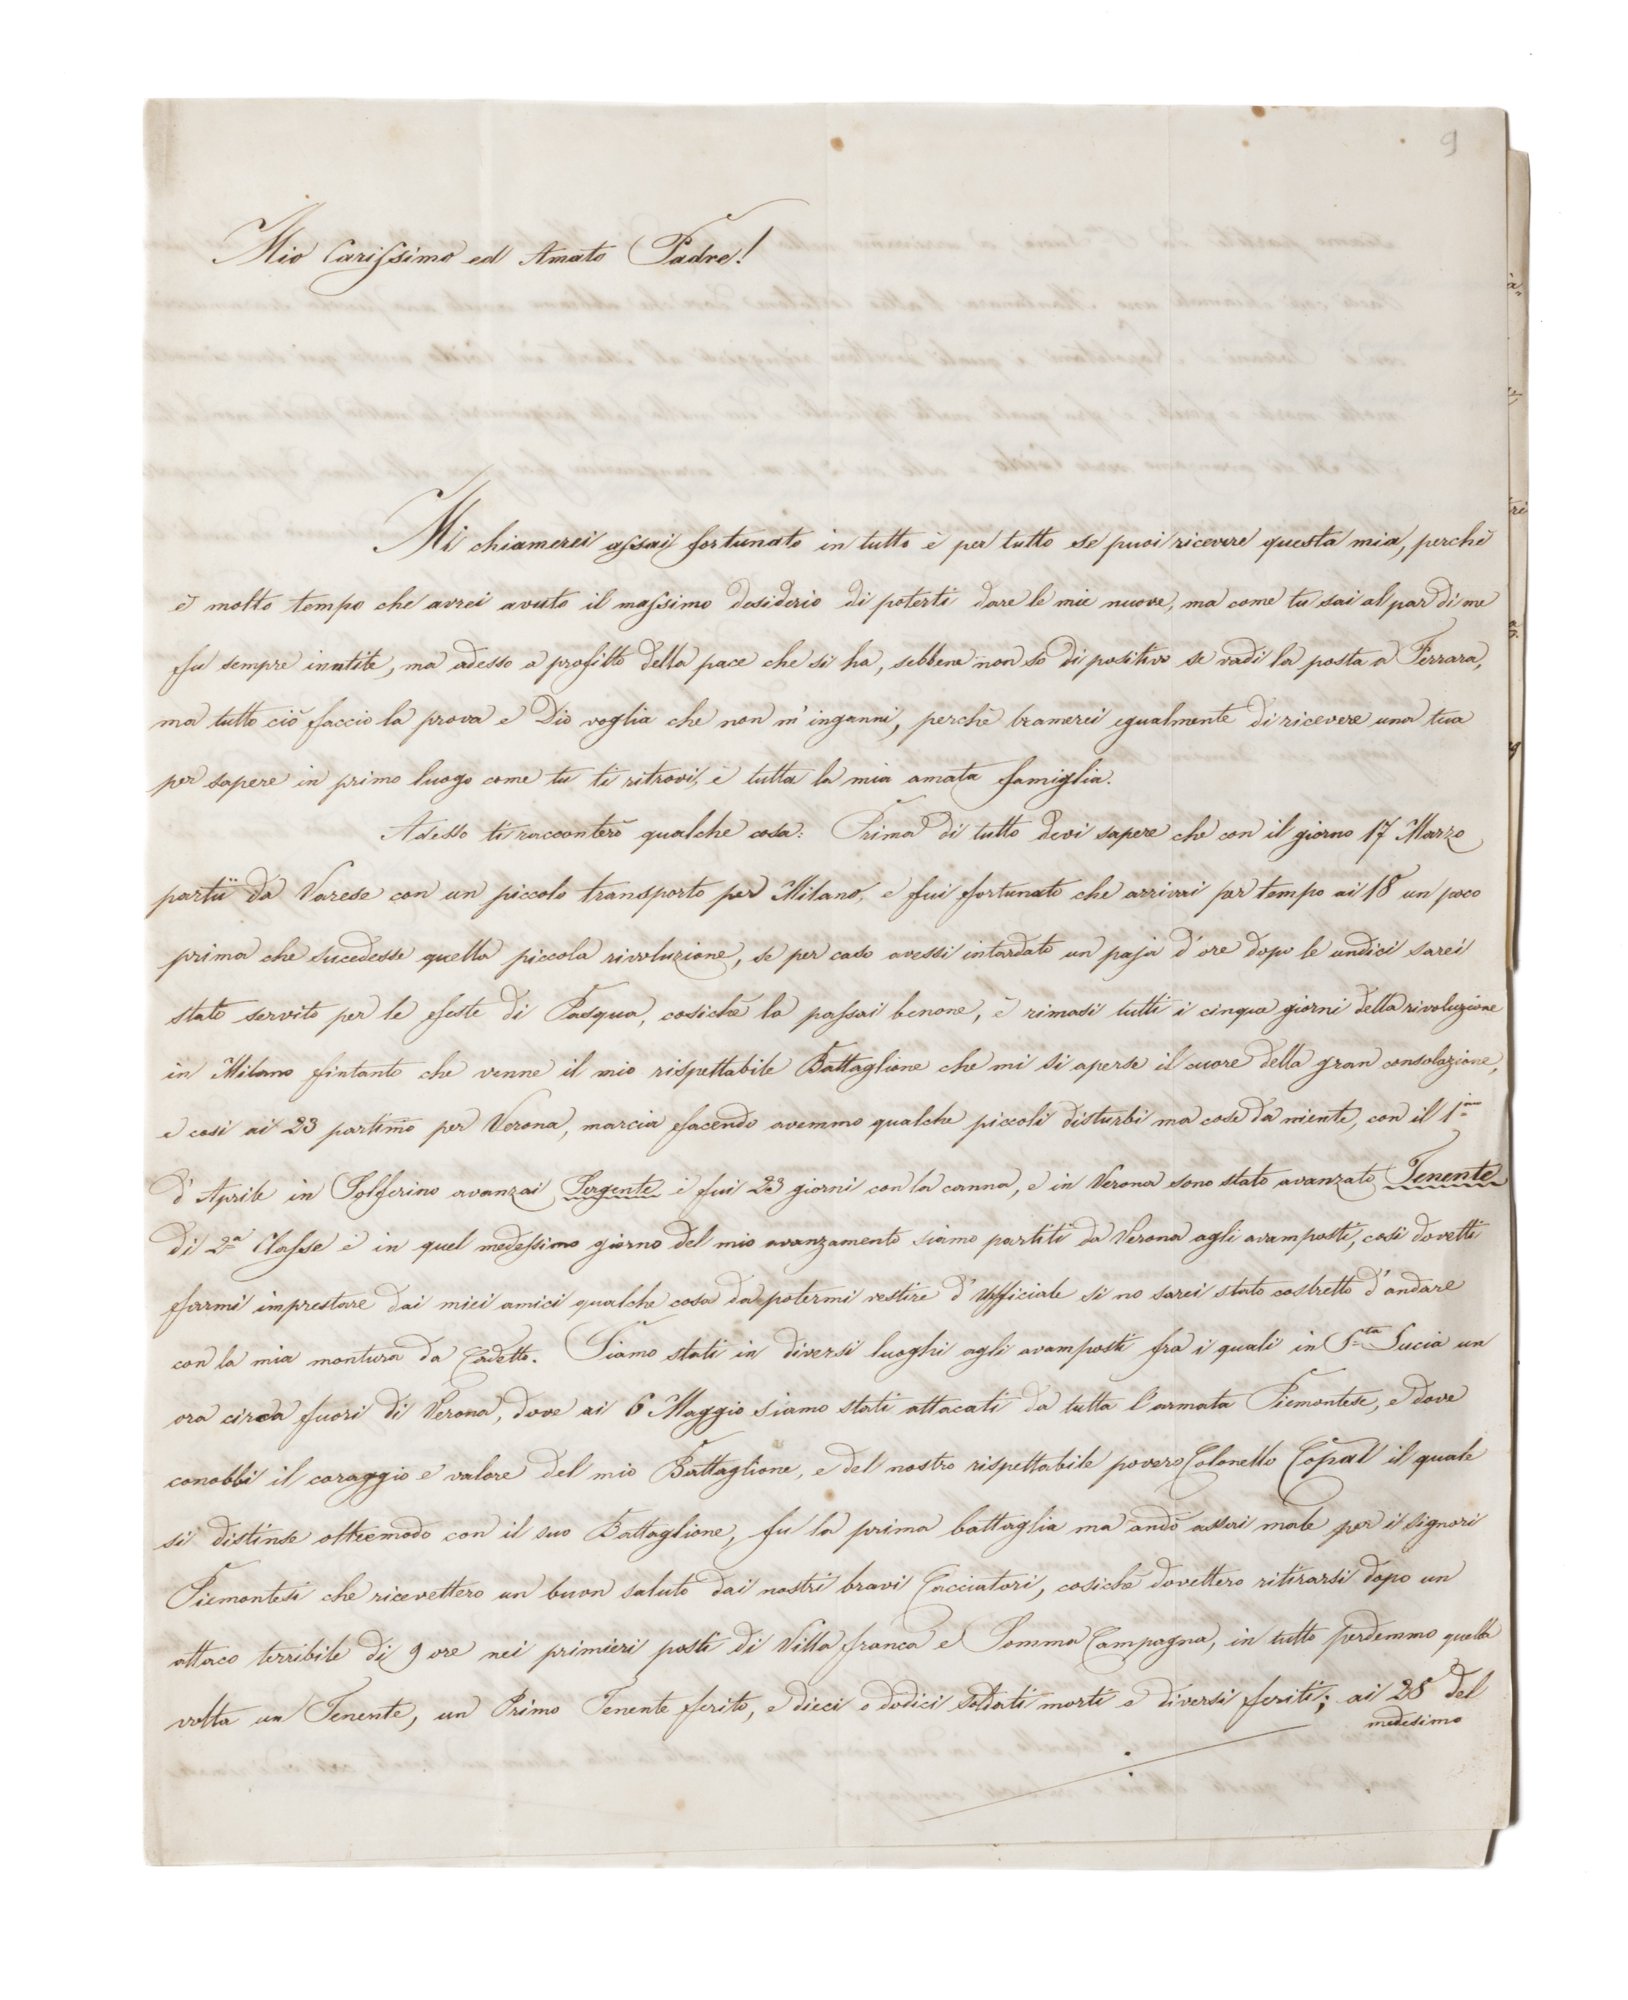 9
Mio Carissimo ed Amato Padre!
Mi chiamerei assai fortunato in tutto è per tutto se puoi ricevere questa mia, perchè
è molto tempo che avrei avuto il massimo desiderio di poterti dare le mie nuove, ma come tu sai al par di me
fu sempre inutile, ma adesso a profitto della pace che si ha, sebbene non sò di positivo se vadi la posta a Ferrara,
ma tutto ciò faccio la prova e Dio voglia che non m'inganni, perchè bramerei egualmente di ricevere una tua
per sapere in primo luogo come tu ti ritrovi, è tutta la mia amata famiglia.
Adesso ti racconterò qualche cosa: Prima di tutto devi sapere che con il giorno 17 Marzo
partii da Varese con un piccolo transporto per Milano, e fui fortunato che arrivai per tempo ai 18 un poco
prima che sucedesse quella piccola rivoluzione, se per caso avessi intardato un paja d'ore dopo le undici sarei
stato servito per le feste di Pasqua, cosichè la passai benone, è rimasi tutti i cinque giorni della rivoluzione
in Milano fintanto che venne il mio rispettabile Battaglione che mi si aperse il cuore della gran consolazione,
e cosi ai 23 partimo per Verona, marcia facendo avemmo qualche piccoli disturbi ma cose da niente, con il 1imo
d'Aprile in Solferino avanzai Sergente è fui 23 giorni con la canna, e in Verona sono stato avanzato Tenente
di 2a Classe è in quel medessimo giorno del mio avanzamento siamo partiti da Verona agli avamposti, cosi dovetti
farmi imprestare dai miei amici qualche cosa da potermi vestire d'Ufficiale si no sarei stato costretto d'andare
con la mia montura da Cadetto. Siamo stati in diversi luoghi agli avamposti fra i quali in Sta Lucia un
ora circa fuori di Verona, dove ai 6 Maggio siamo stati attacati da tutta l'armata Piemontese, e dove
conobbi il coraggio e valore del mio Battaglione, e del nostro rispettabile povero Colonello Copal il quale
si distinse oltremodo con il suo Battaglione, fu la prima battaglia ma andò assai male per i signori
Piemontesi che ricevettero un buon saluto dai nostri bravi Cacciatori, cosichè dovettero ritirarsi dopo un
attaco terribile di 9 ore nei primieri posti di Villa franca e Somma Campagna, in tutto perdemmo quella
volta un Tenente, un Primo Tenente ferito, e dieci o dodici soldati morti e diversi feriti; ai 28 del
medesimo